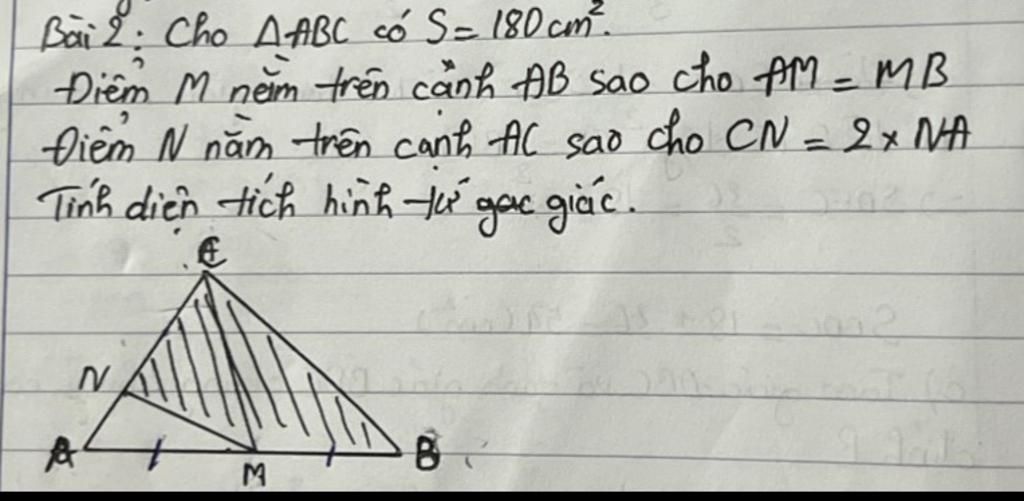 Bài 2: Cho ΔABC có S = 180 cm².
Điểm M nằm trên cạnh AB sao cho AM = MB
Điểm N nằm trên cạnh AC sao cho CN = 2 × NA
Tính diện tích hình tứ gac giác.
C
N
A
M
B